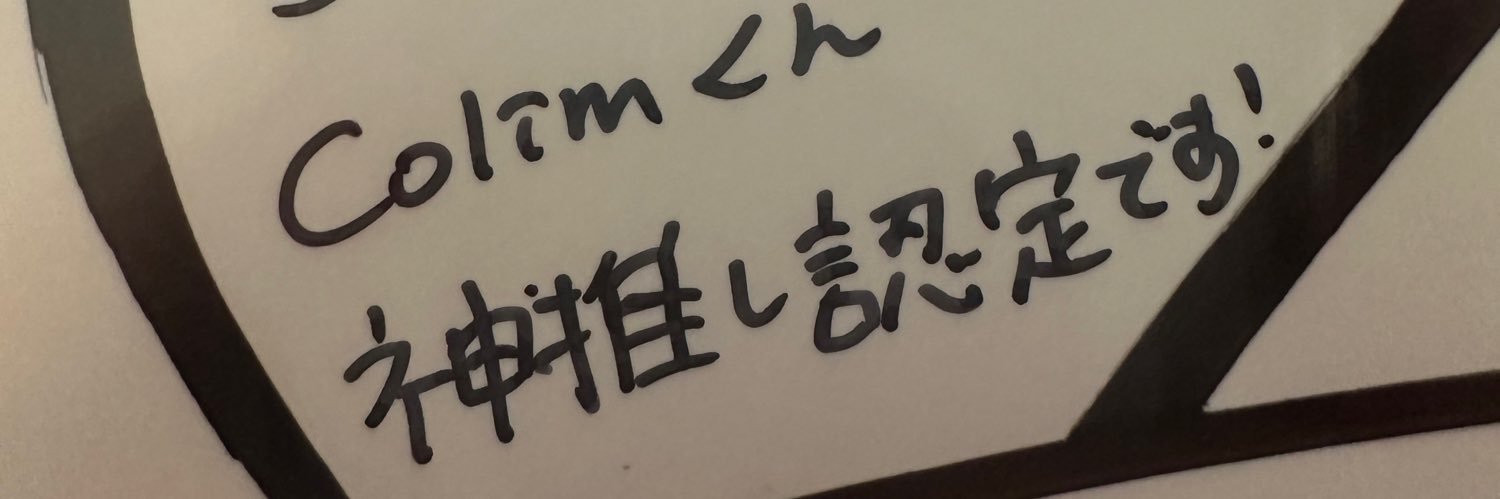 Colimくん
神推し認定です!